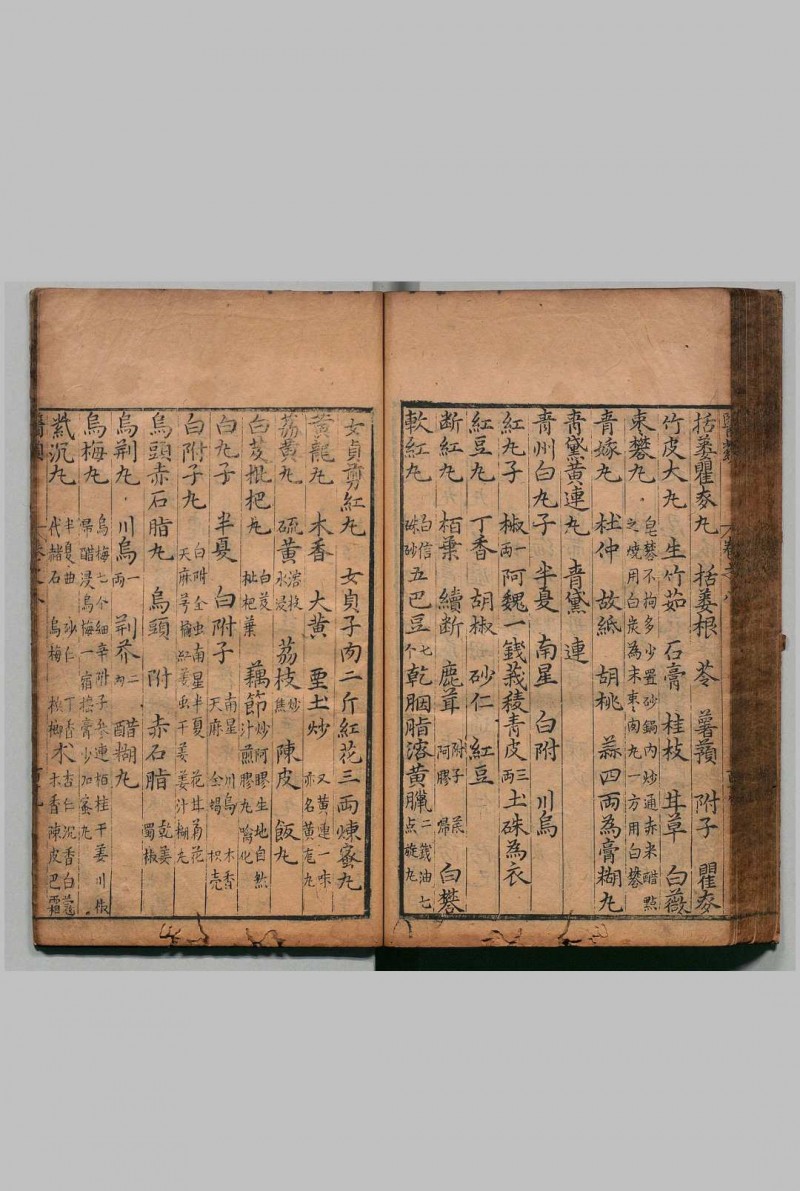 括蔞瞿麦丸 括蔞根 苓 薯蕷 附子 瞿麥
竹皮大丸 生竹茹 石膏 桂枝 甘草 白薇
枣礬丸 皂礬不拘多少置砂鍋内炒通赤米醋點之燒用白炭為末枣肉丸一方用白礬
青娥丸 杜仲 故紙 胡桃 蒜四両為膏糊丸
青黛黄連丸 青黛 連
青州白丸子 半夏 南星 白附 川烏
紅丸子 椒一両 阿魏一錢 莪稜青皮三両 土硃為衣
紅豆丸 丁香 胡椒 砂仁 紅豆
断紅丸 栢葉 續断 鹿茸 附子 茋 阿膠 歸 白礬
軟紅丸 白信硃砂五 巴豆七个 乾胭脂溶黄臘二錢油七点旋丸
女貞剪紅丸 女貞子肉二斤紅花三両煉蜜丸
黄龍丸 木香 大黄 亜土炒 又黄連一味亦名黄龙丸
荔黄丸 硫黄溶投水浸 荔枝炒焦 陳皮 飯丸
白芨枇杷丸 白芨枇杷葉 藕節炒汁煎 阿膠生地自然膠丸噙化
白丸子 半夏 白附子 南星 川烏 木香 天麻 全場 枳壳
白附子丸 白附全虫南星半夏 花甘菊花 天麻芎橘紅姜虫干姜 姜汁糊丸
烏頭赤石脂丸 烏頭 附 赤石脂 乾姜 蜀椒
烏荆丸 川烏一両 荆芥二両 醋糊丸
烏梅丸 烏梅七个細辛附子參連栢桂干姜川椒歸醋浸烏梅一宿擣膏少加蜜丸
紫沉丸 半夏曲 砂仁 丁香 杏仁 沉香 白蔻 代赭石 烏梅 檳榔 木 木香 陳皮 巴霜